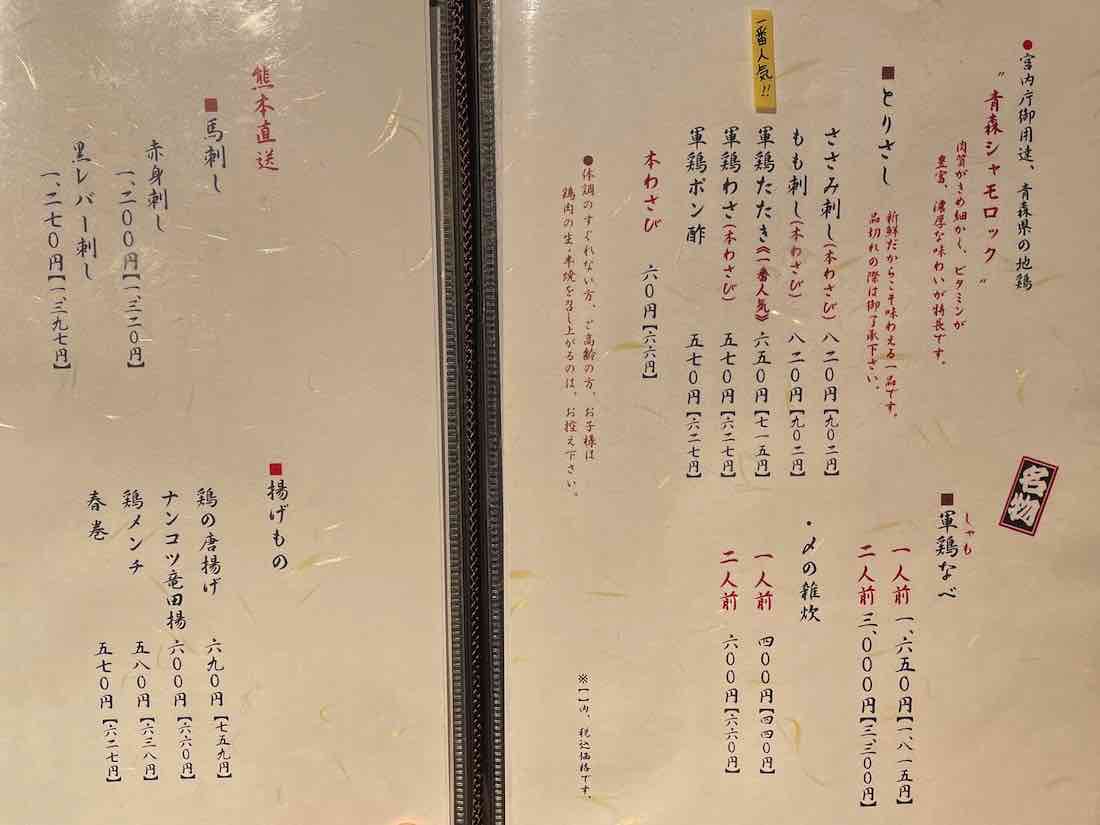 ●宮内庁御用達、青森県の地鶏
"青森シャモロック"
肉質がきめ細かく、ビタミンが
豊富、濃厚な味わいが特長です。
■とりさし
新鮮だからこそ味わえる一品です。
品切れの際は御了承下さい。
ささみ刺し(本わさび) 八二0円【九0二円】
もも刺し(本わさび) 八二0円【九0二円】
一番人気!!
軍鶏たたき《一番人気》 六五0円【七一五円】
軍鶏わさ(本わさび) 五七0円【六二七円】
軍鶏ポン酢 五七0円【六二七円】
本わさび 六0円【六六円】
●体調のすぐれない方、ご高齢の方、お子様は
鶏肉の生・半焼を召し上がるのは、お控え下さい。
名物
■軍鶏なべ
しゃも
一人前 一、六五0円【一、八一五円】
二人前 三、000円【三、三00円】
・〆の雑炊
一人前 四00円【四四0円】
二人前 六00円【六六0円】
※【】内、税込価格です。
熊本直送
■馬刺し
赤身刺し
一、二00円【一、三二0円】
黒レバー刺し
一、二七0円【一、三九七円】
■揚げもの
鶏の唐揚げ 六九0円【七五九円】
ナンコツ竜田揚 六00円【六六0円】
鶏メンチ 五八0円【六三八円】
春巻 五七0円【六二七円】